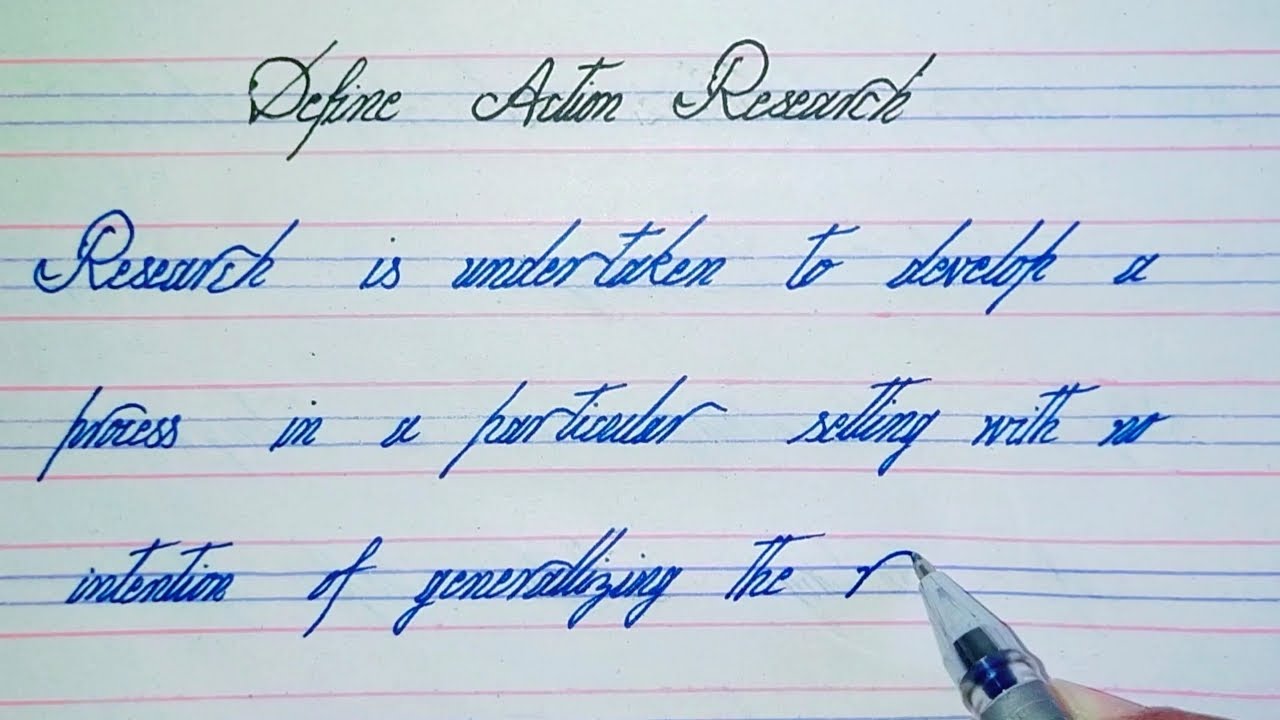 Define Action Research
Research is undertaken to develop a
process in a particular setting with no
intention of generallizing the r